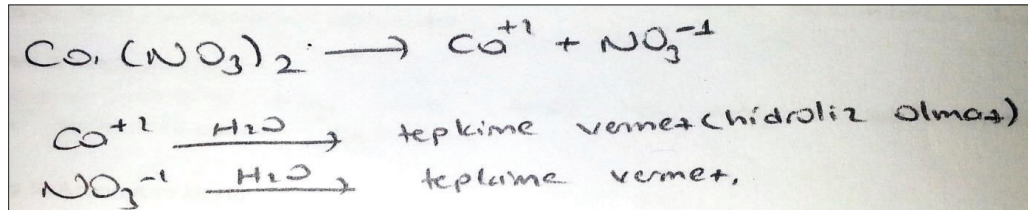 Ca(NO3)2 → Ca+2 + NO3-1
Ca+2 H2O → tepkime vermez (hidroliz olmaz)
NO3-1 H2O → tepkime vermez.